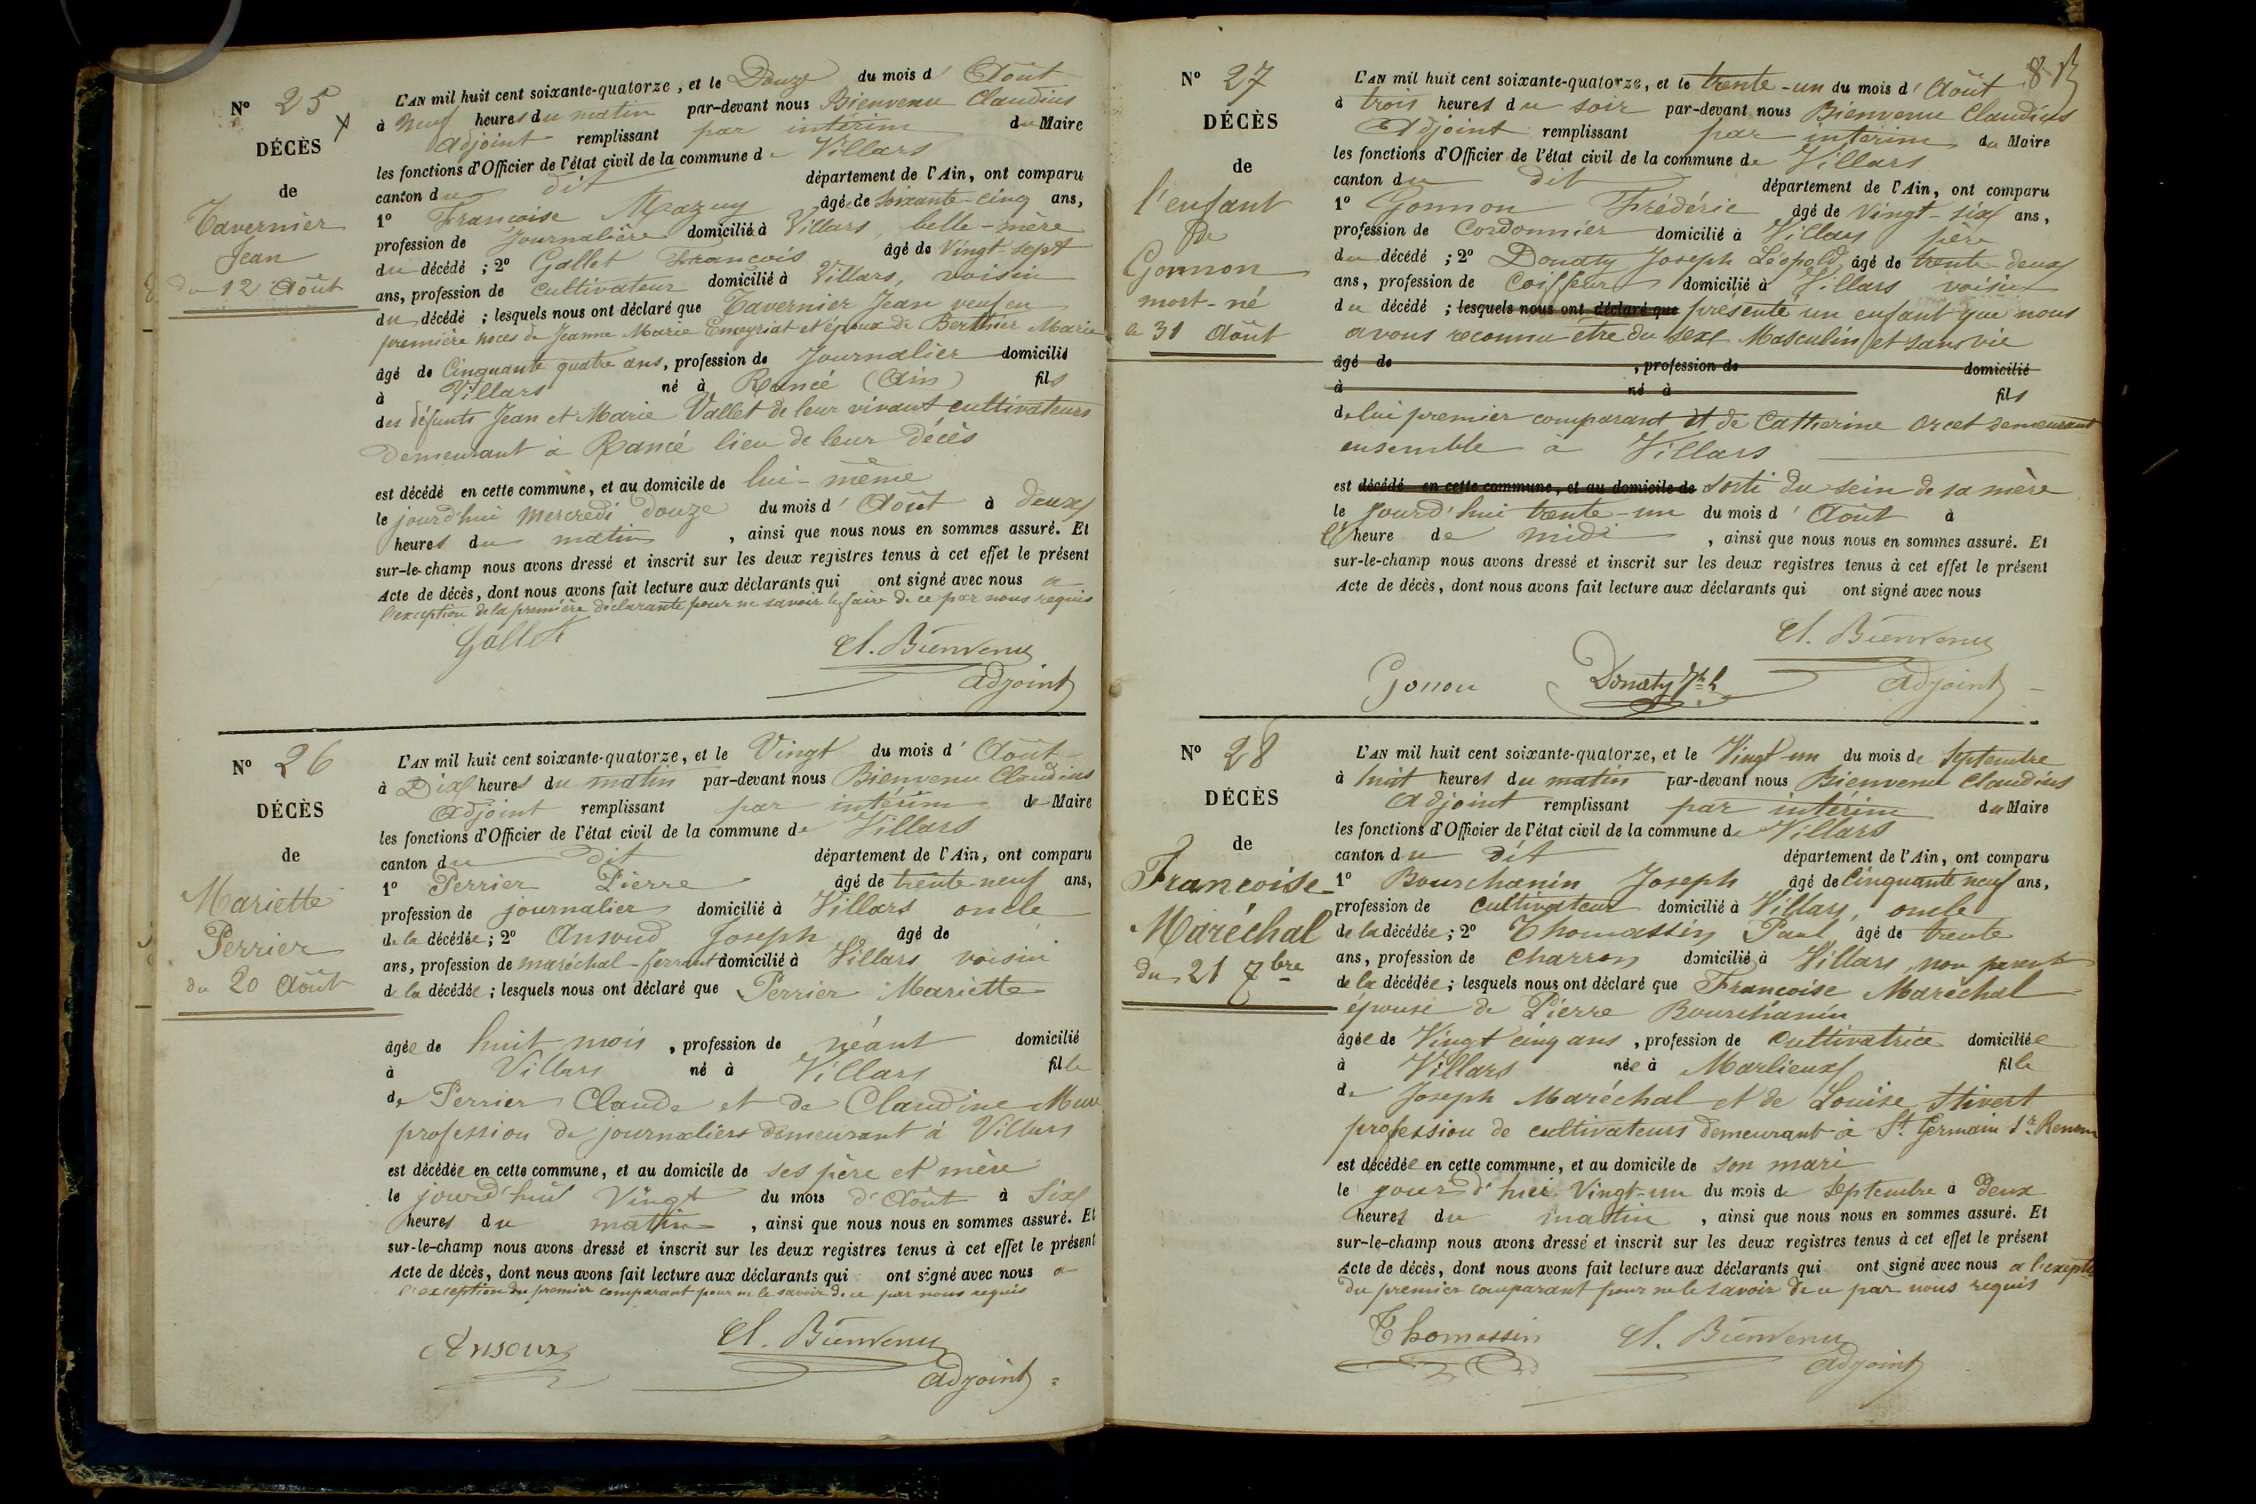 N° 25
DÉCÈS
de
Tavernier
Jean
du 12 Août
L'AN mil huit cent soixante-quatorze, et le Douze du mois d' Août
à Neuf heures du matin par-devant nous Bienvenu Claudius
Adjoint remplissant par intérim du Maire
les fonctions d'Officier de l'état civil de la commune de Villars
canton du dit département de l'Ain, ont comparu
1° Françoise Mazuy âgée de soixante-cinq ans,
profession de Journalière domicilié à Villars, belle-mère
du décédé ; 2° Gallet François âgé de Vingt-sept
ans, profession de cultivateur domicilié à Villars, voisin
du décédé ; lesquels nous ont déclaré que Tavernier Jean veuf en
première noces de Jeanne Marie Emeyriat et époux de Berthier Marie
âgé de Cinquante quatre ans, profession de Journalier domicilié
à Villars né à Rancé (Ain) fils
des défunts Jean et Marie Vallet de leur vivant cultivateurs
Demeurant à Rancé lieu de leur décès
est décédé en cette commune, et au domicile de lui-même
le jourd'hui Mercredi douze du mois d' Août à deux
heures du matin, ainsi que nous nous en sommes assuré. Et
sur-le-champ nous avons dressé et inscrit sur les deux registres tenus à cet effet le présent
Acte de décès, dont nous avons fait lecture aux déclarants qui ont signé avec nous a
l'exception de la première déclarante pour ne savoir le faire de ce par nous requis
Gallet Cl. Bienvenu
adjoint
N° 26
DÉCÈS
de
Mariette
Perrier
du 20 Août
L'AN mil huit cent soixante-quatorze, et le Vingt du mois d' Août
à Dix heures du matin par-devant nous Bienvenu Claudius
Adjoint remplissant par intérim du Maire
les fonctions d'Officier de l'état civil de la commune de Villars
canton du dit département de l'Ain, ont comparu
1° Perrier Pierre âgé de trente neuf ans,
profession de journalier domicilié à Villars oncle
de la décédée ; 2° Ansoud Joseph âgé de
ans, profession de maréchal-ferrant domicilié à Villars voisin
de la décédée ; lesquels nous ont déclaré que Perrier Mariette
âgée de huit mois, profession de néant domicilié
à Villars né à Villars fille
de Perrier Claude et de Claudine
profession de journaliers demeurant à Villars
est décédée en cette commune, et au domicile de ses père et mère
le jourd'hui Vingt du mois d'Août à Six
heures du matin, ainsi que nous nous en sommes assuré. Et
sur-le-champ nous avons dressé et inscrit sur les deux registres tenus à cet effet le présent
Acte de décès, dont nous avons fait lecture aux déclarants qui ont signé avec nous a
l'exception du premier comparant pour ne le savoir de ce par nous requis
Cl. Bienvenu
adjoint
N° 27
DÉCÈS
de
l'enfant
De
Gonnon
mort-né
le 31 Août
L'AN mil huit cent soixante-quatorze, et le trente-un du mois d' Août
à trois heures du soir par-devant nous Bienvenu Claudius
Adjoint remplissant par intérim du Maire
les fonctions d'Officier de l'état civil de la commune de Villars
canton du dit département de l'Ain, ont comparu
1° Gonnon Frédéric âgé de Vingt-six ans,
profession de Cordonnier domicilié à Villars père
du décédé ; 2° Donaty Joseph Léopold âgé de trente-deux
ans, profession de Coiffeur domicilié à Villars voisin
du décédé ; lesquels nous ont déclaré que présenté un enfant que nous
avons reconnu être du sexe Masculin et sans vie
âgé de , profession de domicilié
à né à fils
de lui premier comparant et de Catherine Orcet demeurant
ensemble à Villars
est décédé en cette commune, et au domicile de Sorti du sein de sa mère
le jourd'hui trente-un du mois d' Août à
l'heure de midi, ainsi que nous nous en sommes assuré. Et
sur-le-champ nous avons dressé et inscrit sur les deux registres tenus à cet effet le présent
Acte de décès, dont nous avons fait lecture aux déclarants qui ont signé avec nous
Cl. Bienvenu
Gonon Donaty adjoint
N° 28
DÉCÈS
de
Françoise
Maréchal
du 21 7bre
L'AN mil huit cent soixante-quatorze, et le Vingt-un du mois de Septembre
à huit heures du matin par-devant nous Bienvenu Claudius
Adjoint remplissant par intérim du Maire
les fonctions d'Officier de l'état civil de la commune de Villars
canton du dit département de l'Ain, ont comparu
1° Bourchanin Joseph âgé de Cinquante neuf ans,
profession de cultivateur domicilié à Villars, oncle
de la décédée ; 2° Thomassin Paul âgé de trente
ans, profession de charron domicilié à Villars, non parent
de la décédée ; lesquels nous ont déclaré que Françoise Maréchal
épouse de Pierre Bourchanin
âgée de Vingt cinq ans, profession de Cultivatrice domiciliée
à Villars née à Marlieux fille
de Joseph Maréchal et de Louise Stivert
profession de cultivateurs demeurant à St Germain sr Renom
est décédée en cette commune, et au domicile de son mari
le jour d'hui Vingt-un du mois de Septembre à Deux
heures du matin, ainsi que nous nous en sommes assuré. Et
sur-le-champ nous avons dressé et inscrit sur les deux registres tenus à cet effet le présent
Acte de décès, dont nous avons fait lecture aux déclarants qui ont signé avec nous a l'excepti
du premier comparant pour ne le savoir de ce par nous requis
Thomassin Cl. Bienvenu
adjoint